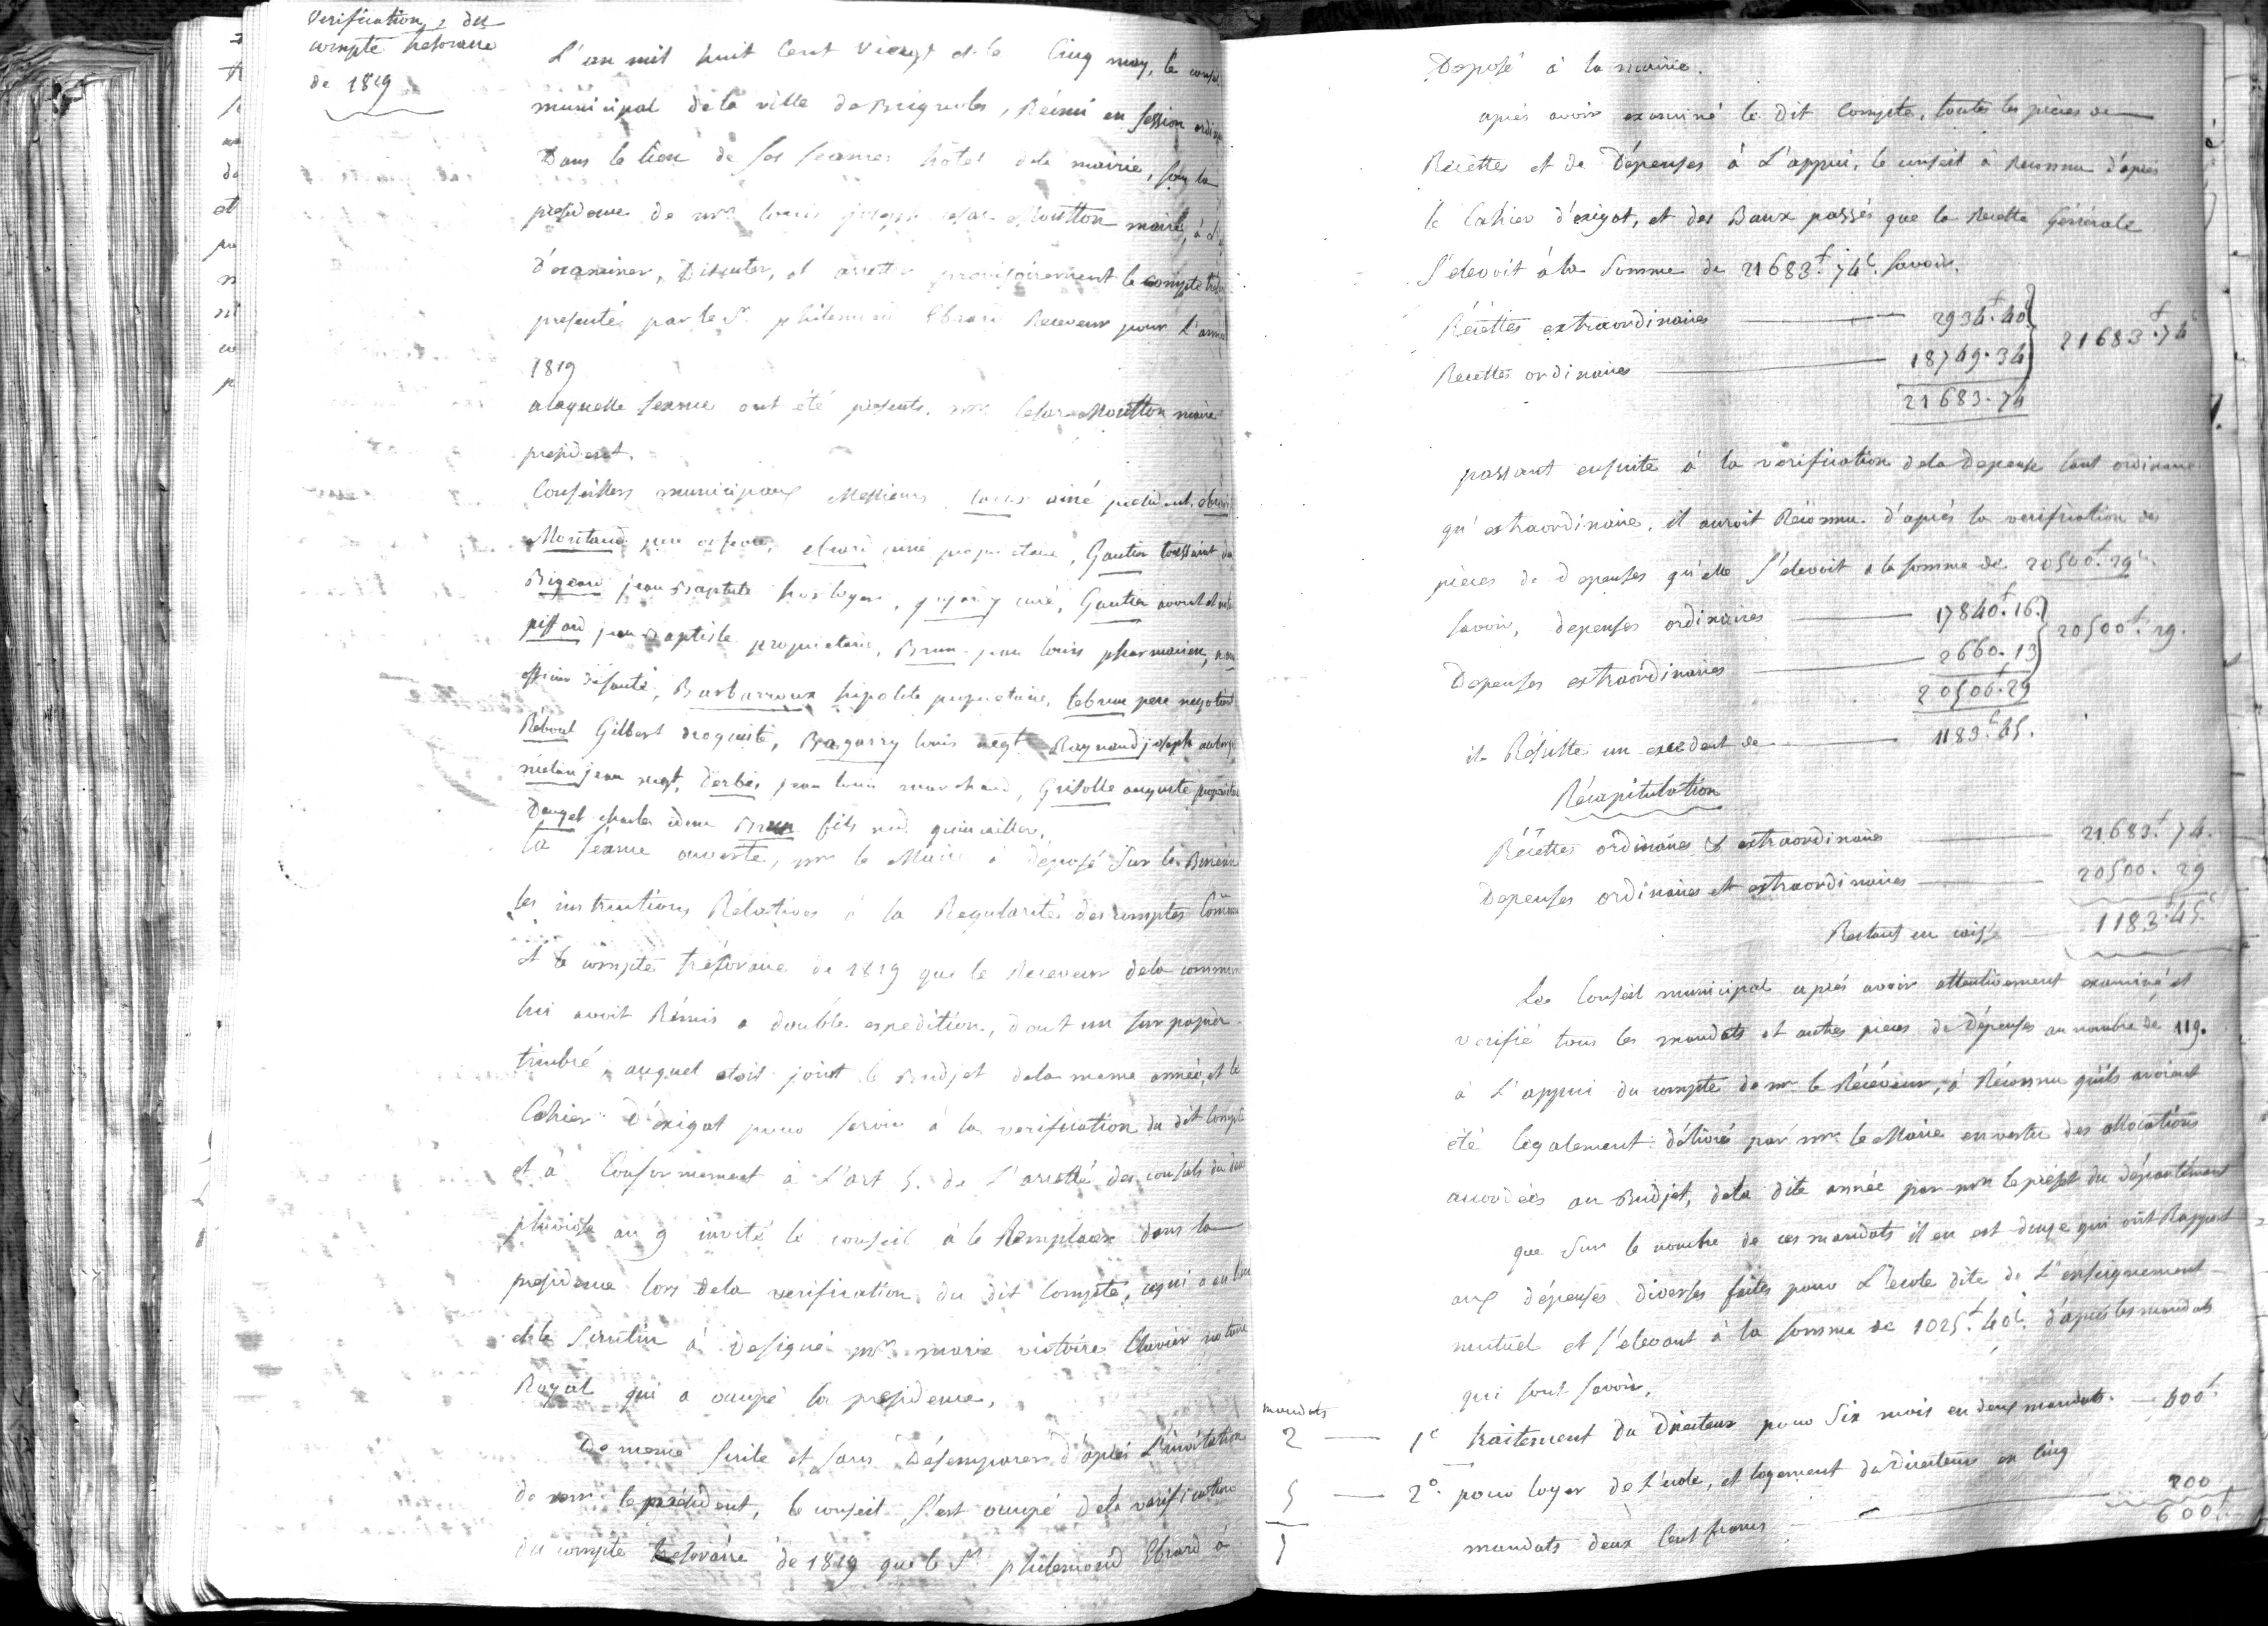 Verification du
compte tresoraire
de 1819
L'an mil huit Cent Vingt et le Cinq may, le conseil
municipal dela ville de Brignoles, Réuni en session
Dans le lieu de ses seances hôtel dela mairie, sous la
presidence de mr louis joseph cesar Moutton maire, à
d'examiner, Discuter, et arretter provisoirement le compte
presenté par le Sr. philemond Ebrard Receveur pour L'année
1819
alaquelle seance ont été présents, mr. Cesar Moutton maire
president.
Conseillers municipaux Messieurs ainé president
Moutard ebrard ainé proprietaire, Gautier toussaint
Bigeard jean Baptiste horloger, curé, Gautier avocat et
piffard jean Baptiste proprietaire, Brun jean louis pharmacien,
officier de santé, Barbarroux hipolite proprietaire, lebrun pere negotiant
Réboul Gilbert droguiste, Bagarry louis negt. Raynaud joseph
jean negt, derbès jean louis marchand, Grisolle auguste proprietaire
Dauget charles idem Brun fils md. quincaillier,
la séance ouverte, mr le Maire à déposé sur le Bureau
les instructions Rélatives à la Regularités des comptes
et le compte trésoraire de 1819 que le Receveur dela commune
lui avoit Rémis a double expedition, dont un sur papier
timbré auquel etoit joint le Budjet dela meme année, et le
Cahier d'exigat pour servir à la verification du dit Compte
et à Conformement à L'art 5. de L'arretté des consuls du
pluviose an 9 invité le conseil à le Remplacer dans la
presidence lors dela verification du dit Compte, ce qui a eu lieu
et le Scrutin à designé mr. marie victoire Clavier notaire
Royal qui a occupé la presidence,
De meme suite et sans Désemparer d'après L'invitation
de mr. le président, le conseil s'est occupé dela verification
du compte tresoraire de 1819 que le Sr. philemond Ebrard à
Déposé à la mairie.
après avoir examiné le dit Compte, toutes les pièces de
Récettes et de Dépenses à L'appui, le conseil à Reconnu d'après
le Cahier d'exigat, et des Baux passés que la Recette Générale
S'elevoit à la Somme de 21683.f 74c. Savoir.
Récettes extraordinaires 2934.f 40c } 21683.f 74c
Recettes ordinaires 18749.34
21683.74
passant ensuite à la vérification dela Depense tant ordinaire
qu'extraordinaire, il auroit Réconnu d'après la verification des
pièces de depenses qu'elle S'elevoit a la somme de 20500.f 29c.
Savoir, depenses ordinaires 17840.f 16. } 20500.f 29.
Depenses extraordinaires 2660.13
20500.29
il Résulte un excedent de 1183.f 45.
Récapitulation
Récettes ordinaires & extraordinaires 21683.f 74.
Depenses ordinaires et extraordinaires 20500. 29
Restant en caisse 1183.f 45.c
Le Conseil municipal après avoir attentivement examiné et
verifié tous les mandats et autres pieces de Dépenses au nombre de 119.
à L'appui du compte de mr. le Récéveur, à Réconnu qu'ils avoient
été légalement délivré par mr. le Maire en vertu des allocations
accordées au Budjet, dela dite année par mr le préfet du département
que Sur le nombre de ces mandats il en est douze qui ont Rapport
aux dépenses diverses faites pour L'ecole dite de L'enseignement
mutuel et s'elevant à la somme de 1025.f 40c. d'après les mandats
qui sont savoir,
mandats
2 — 1° traitement du Directeur pour Six mois en deux mandats. — 400f.
5 — 2°. pour loyer de L'ecole, et logement du Directeur en Cinq
mandats deux Cent francs 200
7 600f.